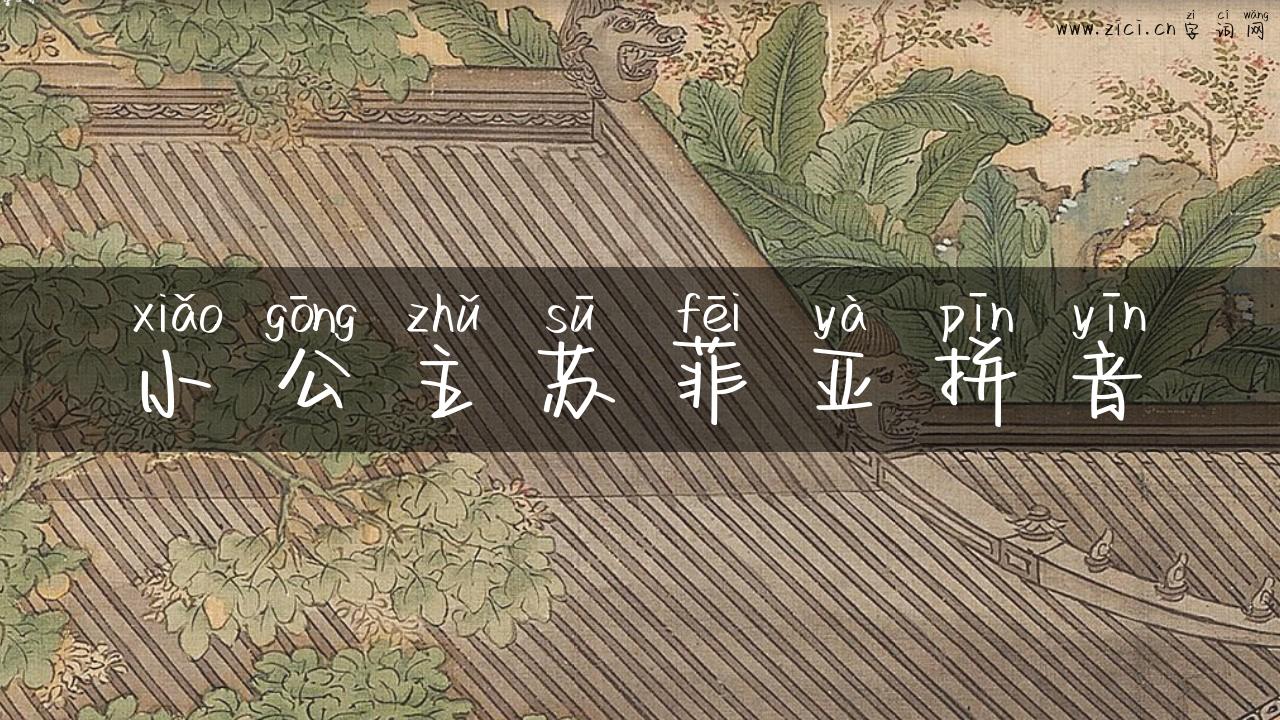 zì cí wǎng
www.zici.cn 字词网
xiǎo gōng zhǔ sū fēi yà pīn yīn
小公主苏菲亚拼音